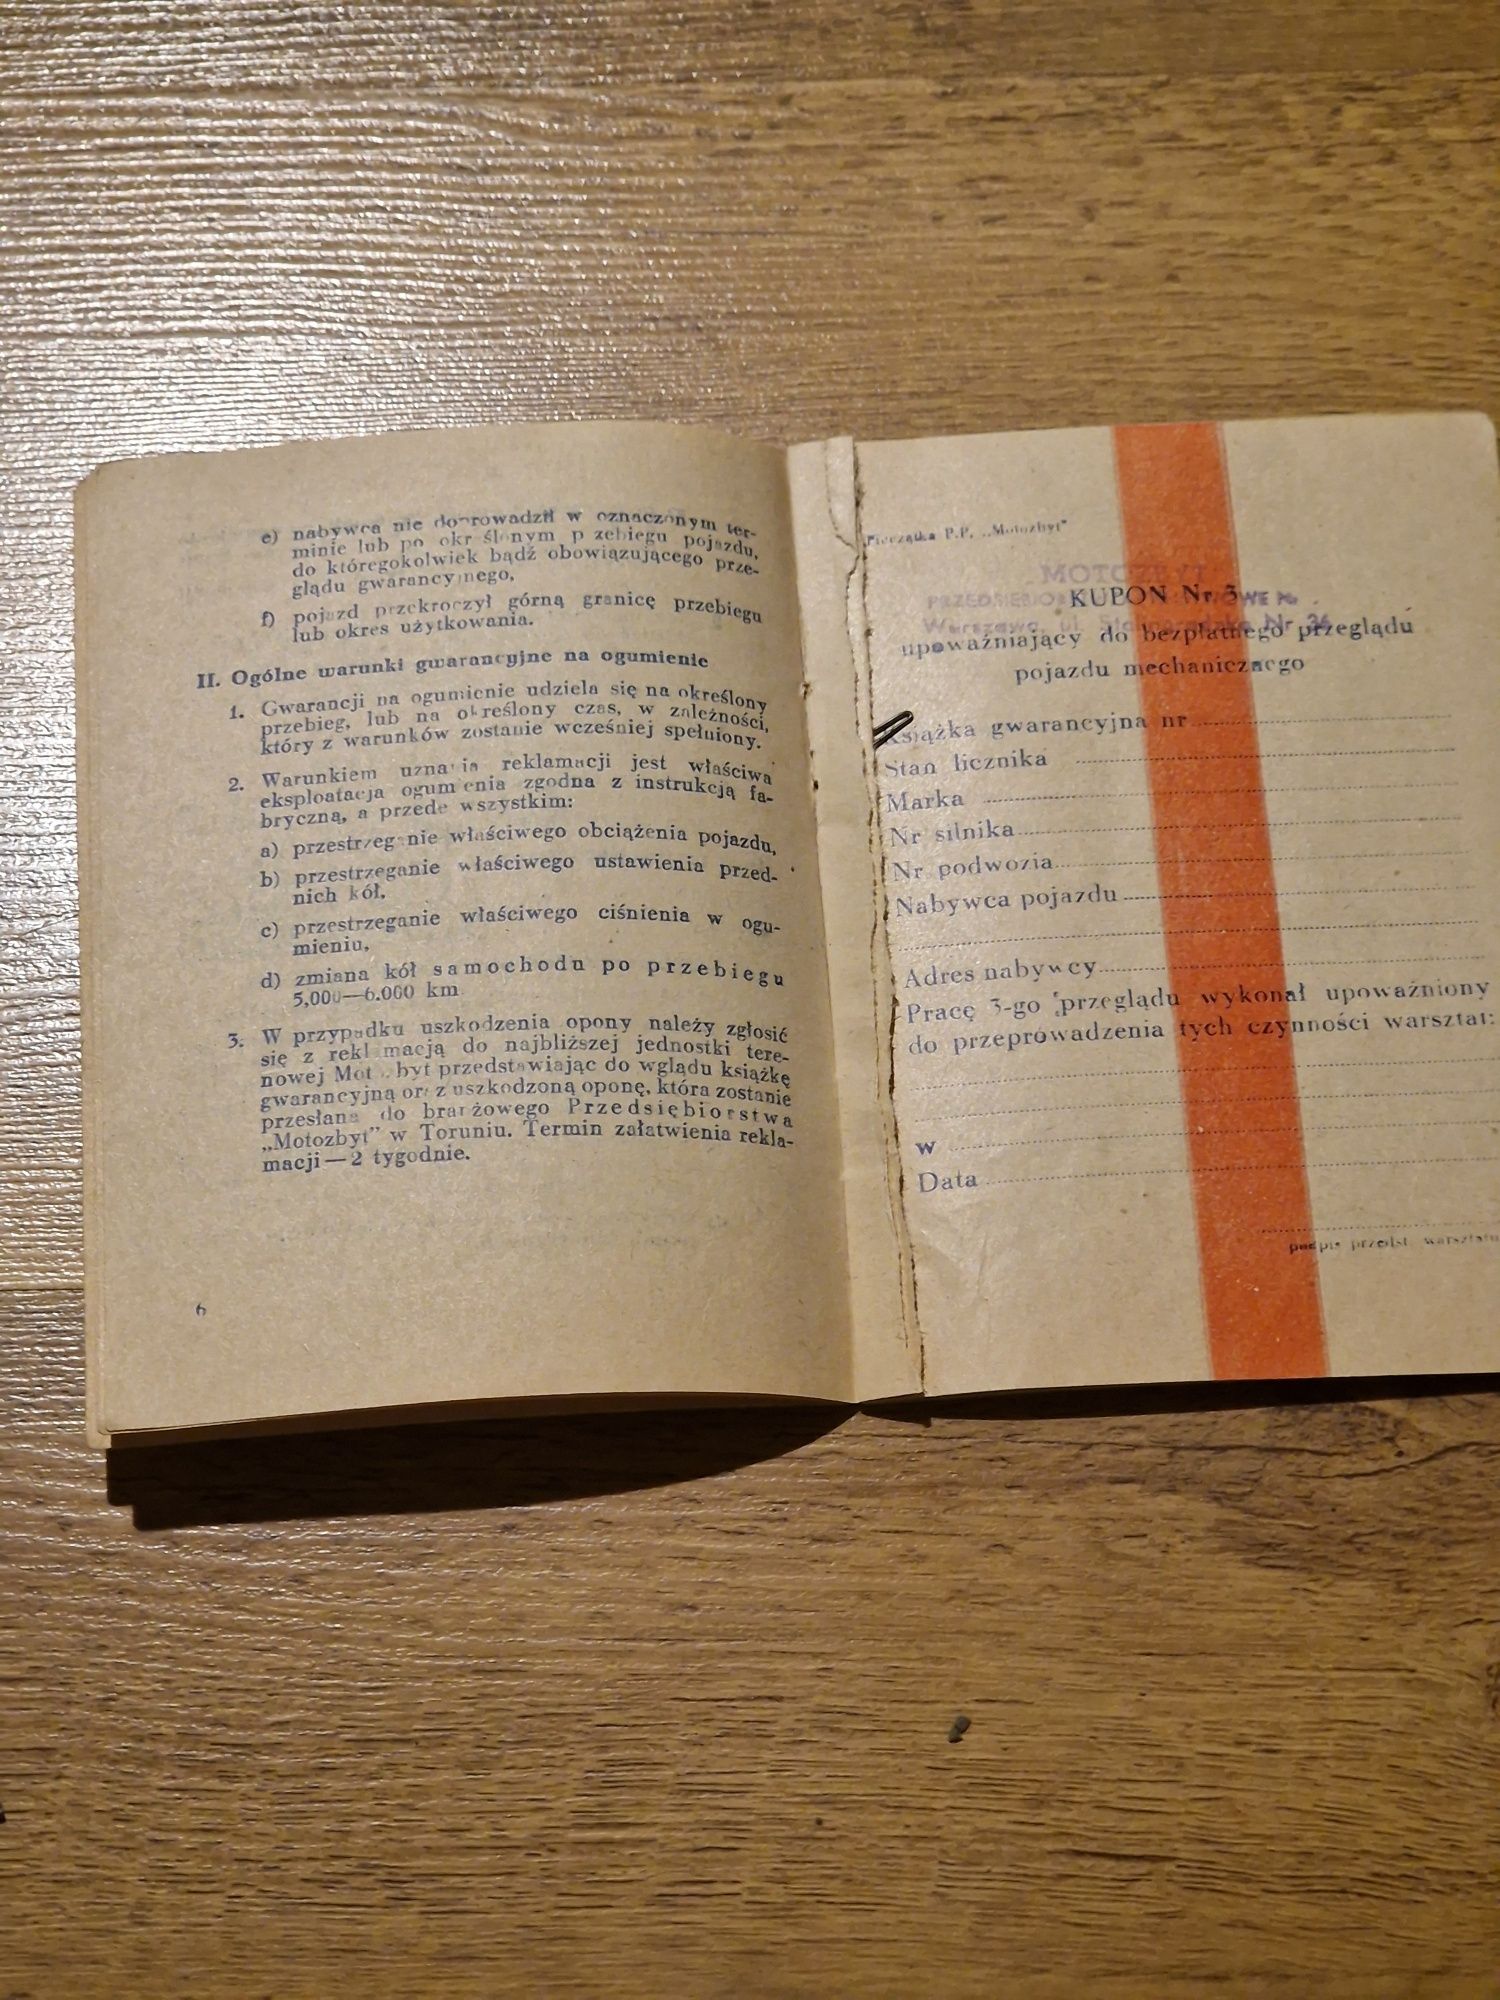 e) nabywca nie doprowadził w oznaczonym ter-
minie lub po określonym przebiegu pojazdu,
do któregokolwiek bądź obowiązującego prze-
glądu gwarancyjnego,
f) pojazd przekroczył górną granicę przebiegu
lub okres użytkowania.
II. Ogólne warunki gwarancyjne na ogumienie
1. Gwarancji na ogumienie udziela się na określony
przebieg, lub na określony czas, w zależności,
który z warunków zostanie wcześniej spełniony.
2. Warunkiem uznania reklamacji jest właściwa
eksploatacja ogumienia zgodna z instrukcją fa-
bryczną, a przede wszystkim:
a) przestrzeganie właściwego obciążenia pojazdu,
b) przestrzeganie właściwego ustawienia przed-
nich kół,
c) przestrzeganie właściwego ciśnienia w ogu-
mieniu,
d) zmiana kół samochodu po przebiegu
5.000—6.000 km
3. W przypadku uszkodzenia opony należy zgłosić
się z reklamacją do najbliższej jednostki tere-
nowej Motozbyt przedstawiając do wglądu książkę
gwarancyjną oraz uszkodzoną oponę, która zostanie
przesłana do branżowego Przedsiębiorstwa
„Motozbyt” w Toruniu. Termin załatwienia rekla-
macji—2 tygodnie.
6
Pieczątka P.P. „Motozbyt”
MOTOZBYT
KUPON Nr 3
Warszawa, ul. Nr 36
upoważniający do bezpłatnego przeglądu
pojazdu mechanicznego
Książka gwarancyjna nr
Stan licznika
Marka
Nr silnika
Nr podwozia
Nabywca pojazdu
Adres nabywcy
Pracę 3-go przeglądu wykonał upoważniony
do przeprowadzenia tych czynności warsztat:
w
Data
podpis przedst. warsztatu